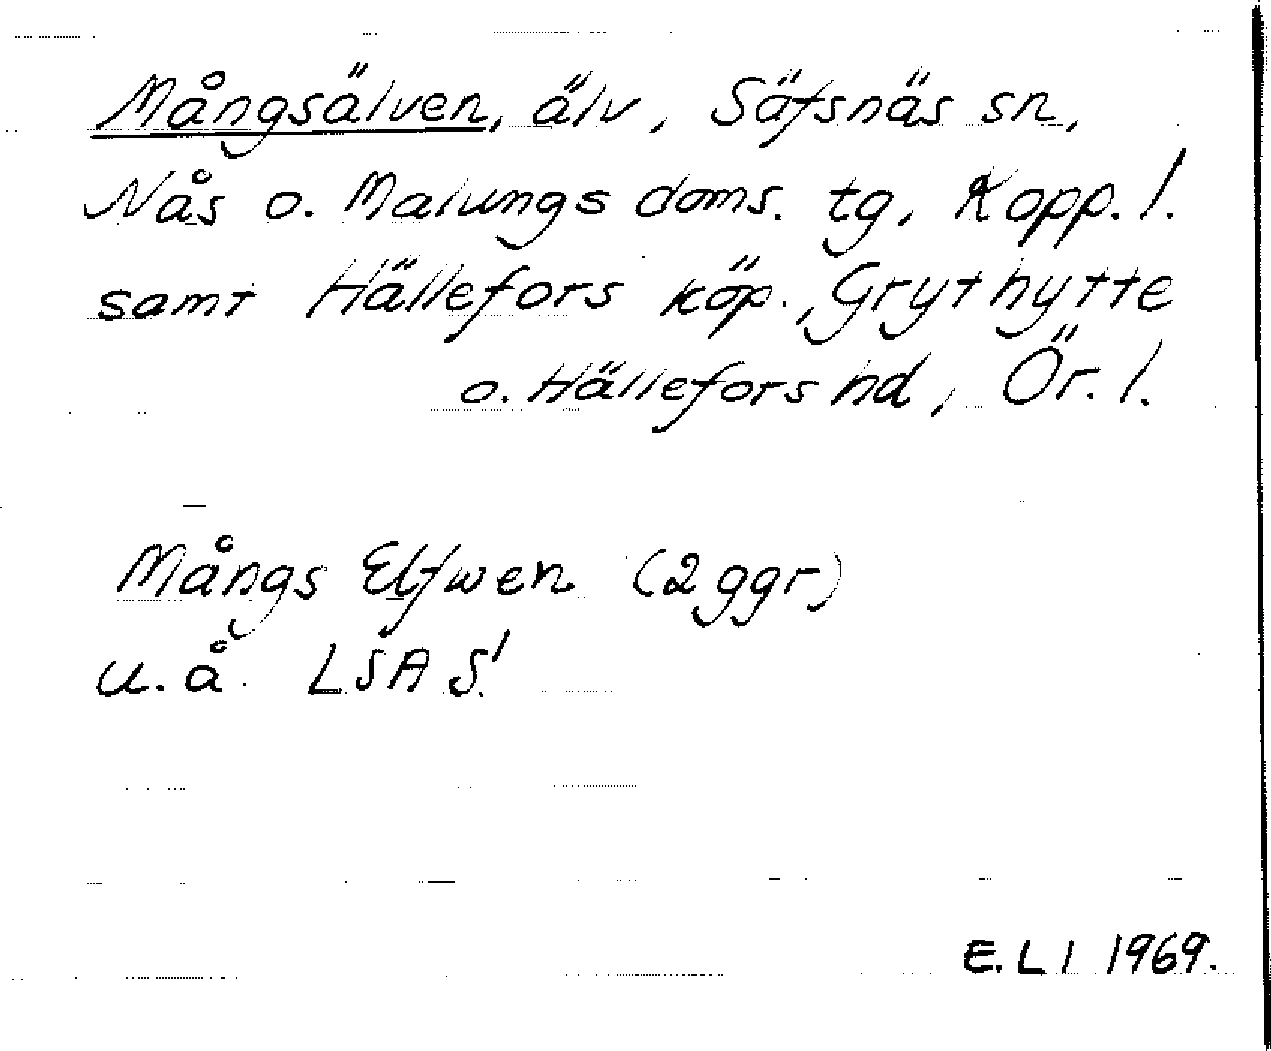 Mångsälven, älv, Säfsnäs sn,
Nås o. Malungs doms. tg, Kopp. l.
samt Hällefors köp., Grythytte
o. Hällefors hd, Ör. l.
Mångs Elfwen (2 ggr)
u.å. LSA S!
E. L l 1969.